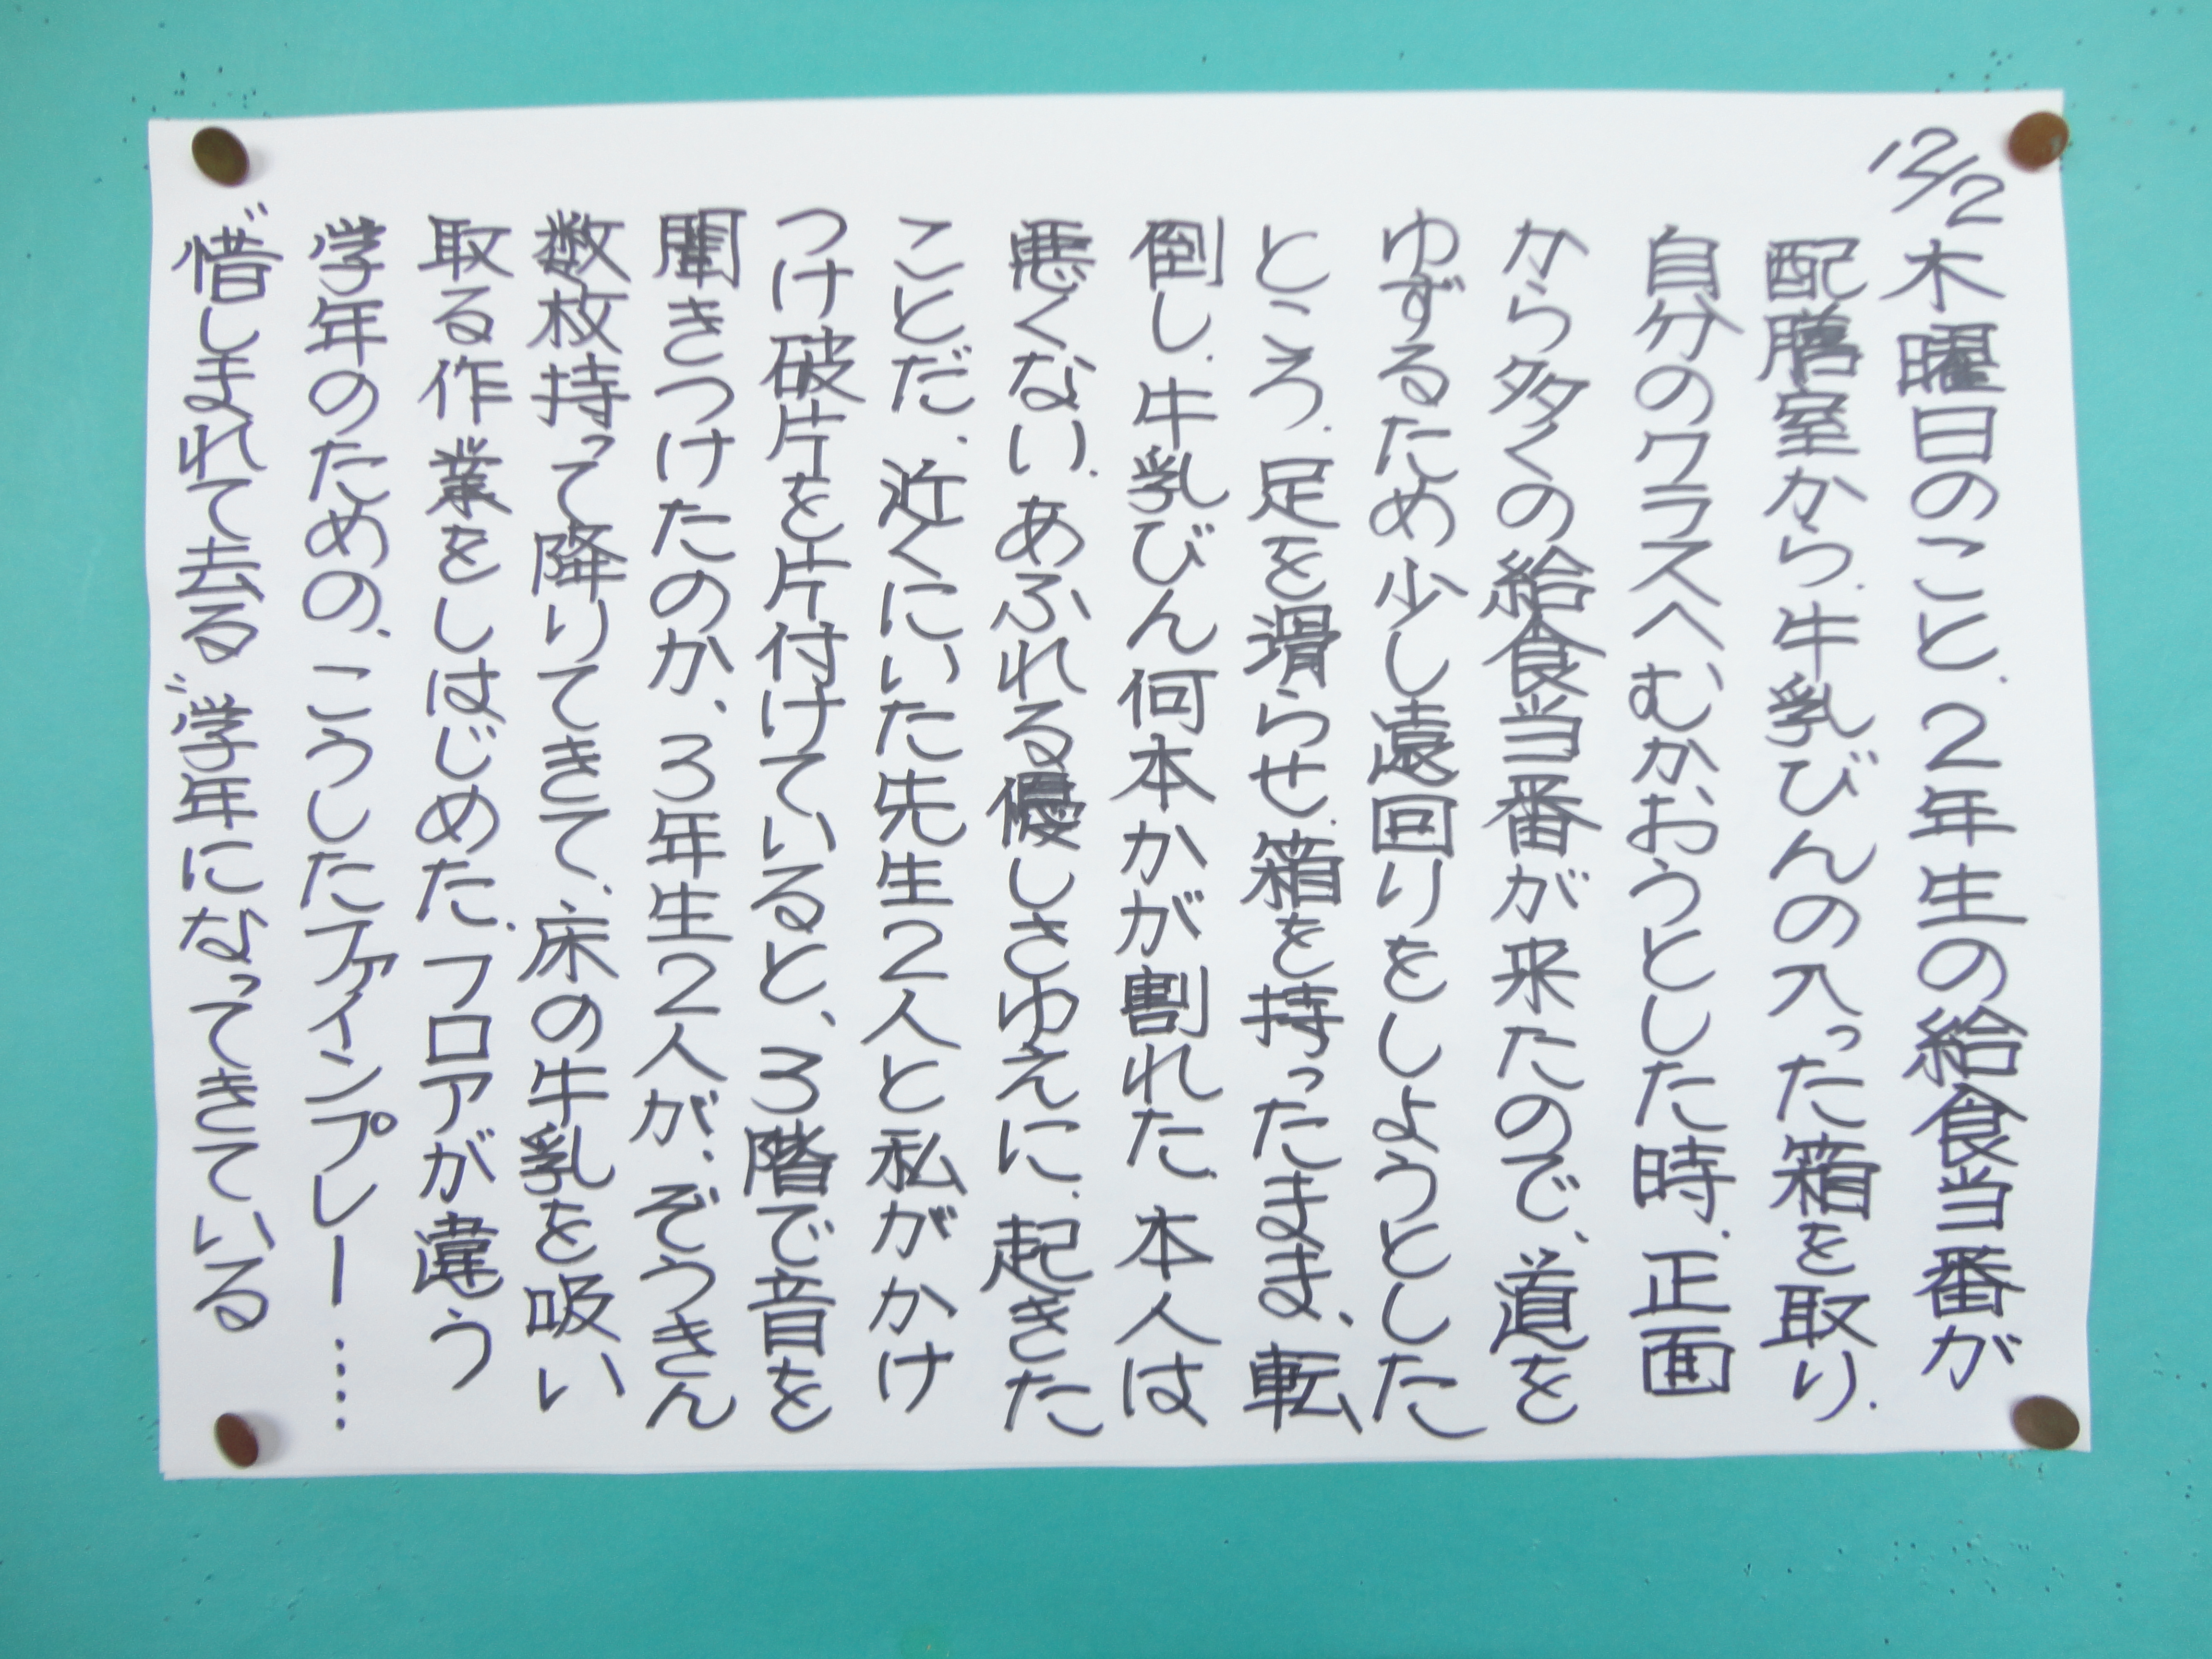 12/2
木曜日のこと、2年生の給食当番が
配膳室から、牛乳びんの入った箱を取り、
自分のクラスへむかおうとした時、正面
から多くの給食当番が来たので、道を
ゆずるため少し遠回りをしようとした
ところ、足を滑らせ、箱を持ったまま、転
倒し、牛乳びん何本かが割れた。本人は
悪くない。あふれる優しさゆえに、起きた
ことだ。近くにいた先生2人と私がかけ
つけ破片を片付けていると、3階で音を
聞きつけたのか、3年生2人が、ぞうきん
数枚持って降りてきて、床の牛乳を吸い
取る作業をしはじめた。フロアが違う
学年のための、こうしたファインプレー……
"惜しまれて去る"学年になってきている